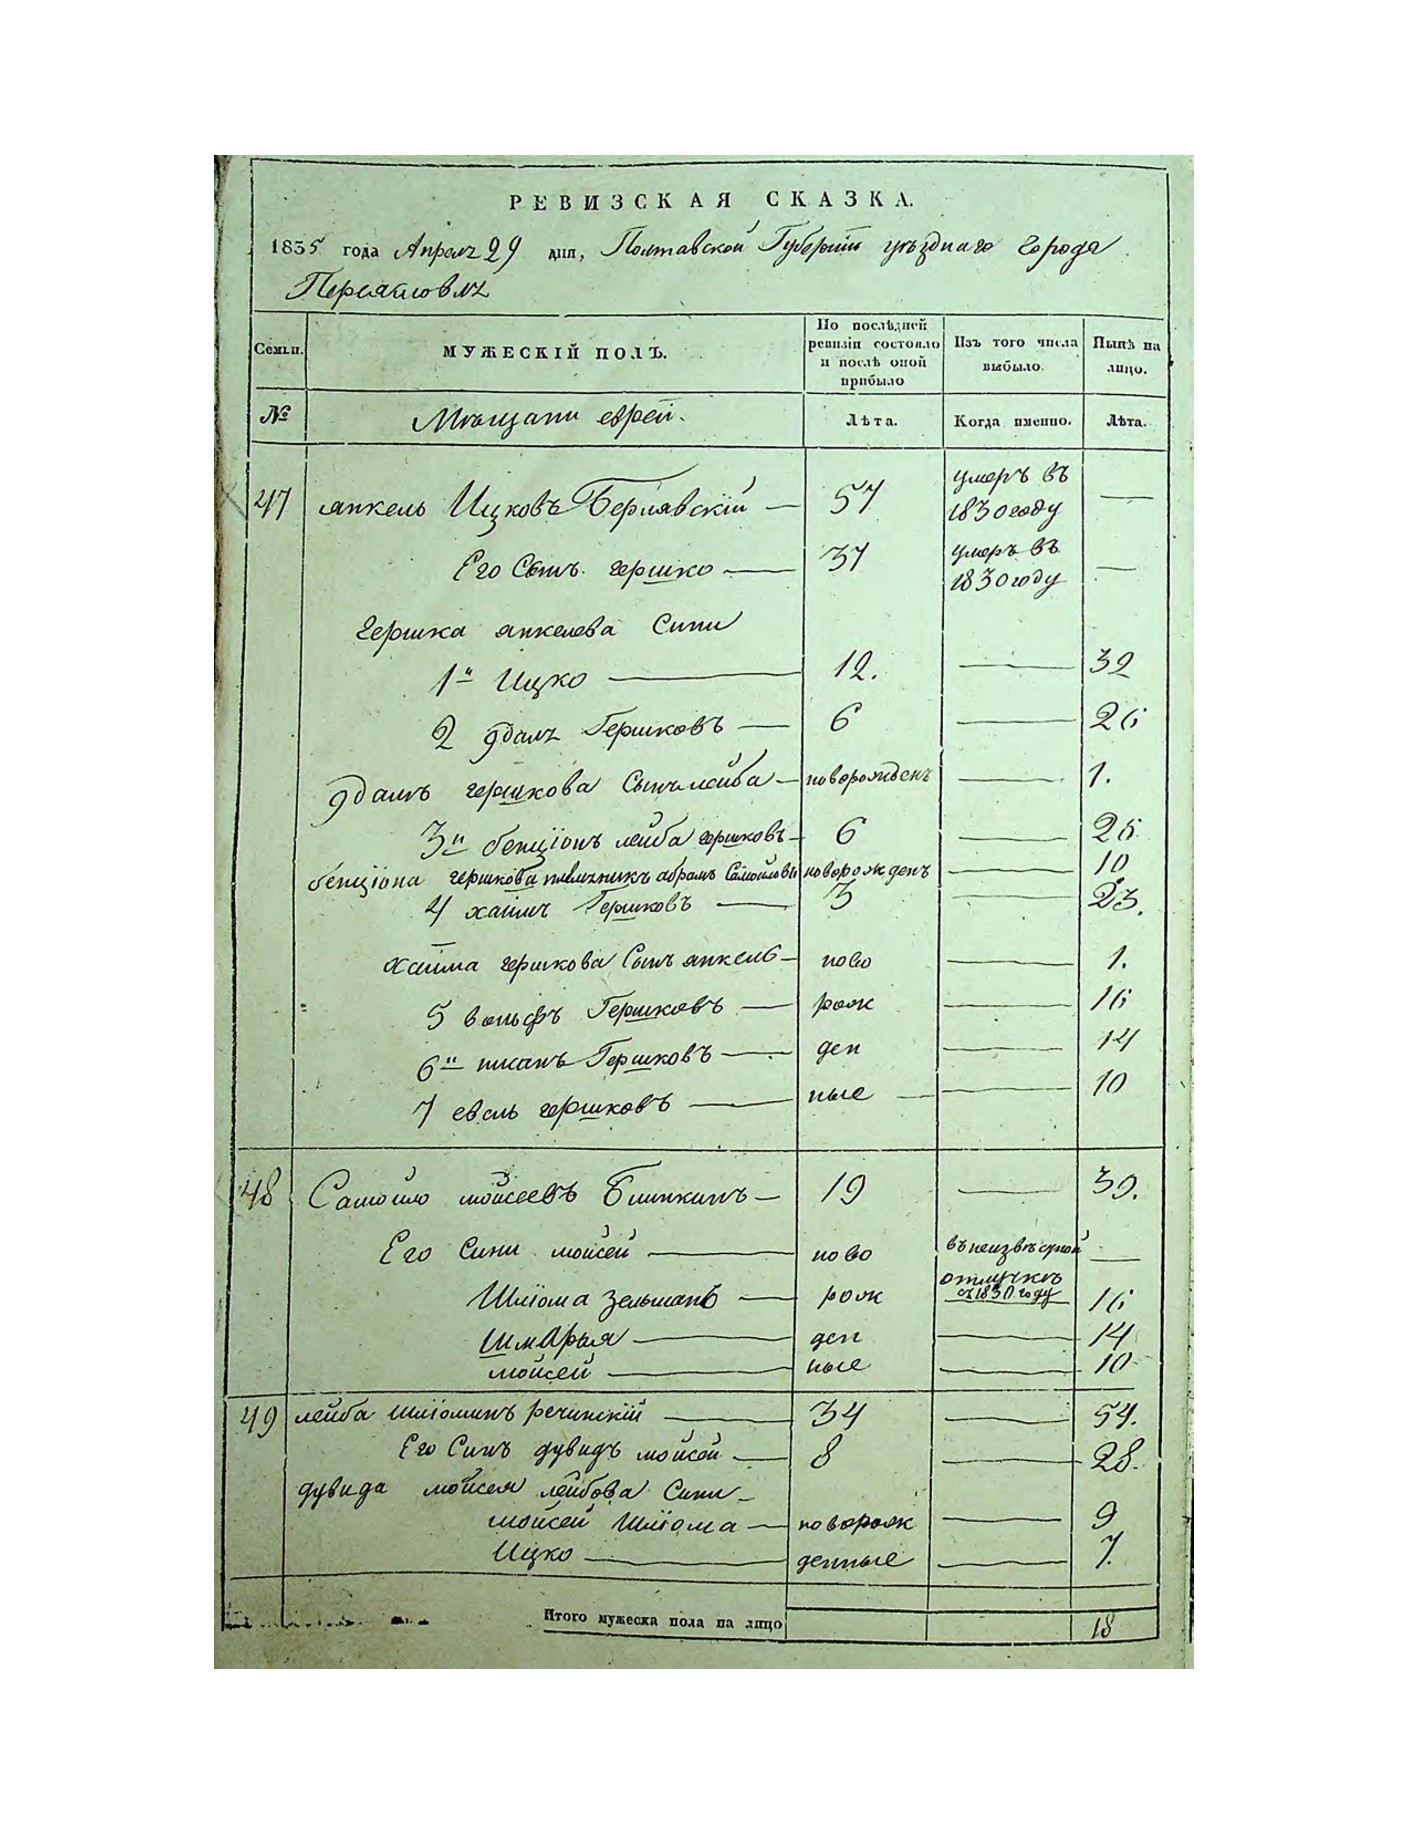 РЕВИЗСКАЯ СКАЗКА.
1835 года Апреля 29 дня, Полтавской Губернии уѣзднаго города
Переяславля
Семьи.
МУЖЕСКІЙ ПОЛЪ.
По послѣдней ревизіи состояло и послѣ оной прибыло
Изъ того числа выбыло.
Нынѣ на лицо.
№ Мѣщани евреи. Лѣта. Когда именно. Лѣта.
47 янкель Ицковъ Бернявскій — 57 умеръ въ 1830 году —
Его Сынъ гершко — 37 умеръ въ 1830 году —
Гершка янкелева Сини
1й Ицко — 12. — 32
2 Гершковъ — 6 — 26
гершкова Сынъ лейба — новорожденъ — 1.
3й бенціонъ лейба гершковъ — 6 — 25
бенціона гершкова племянникъ абрамъ Самойловъ новорожденъ — 10
4 хаимъ Гершковъ — 3 — 23.
Хаима гершкова Сынъ янкель — ново — 1.
5 вольфъ Гершковъ — рож — 16
6й Гершковъ — ден — 14
7 евель гершковъ — ные — 10
48 Самойло мойсеевъ — 19 — 39.
Его Сини мойсей — ново въ неизвѣстной отлучкѣ съ 1830 году —
Шліома зельманъ — рож 16
Шмарья — ден — 14
мойсей — ные — 10
49 лейба шліоминъ речинскій — 34 — 54.
Его Синъ дувидъ мойсей — 8 — 28.
дувида мойсея лейбова Сини —
мойсей Шліома — новорож — 9
Ицко — денные — 7.
Итого мужеска пола на лицо 18